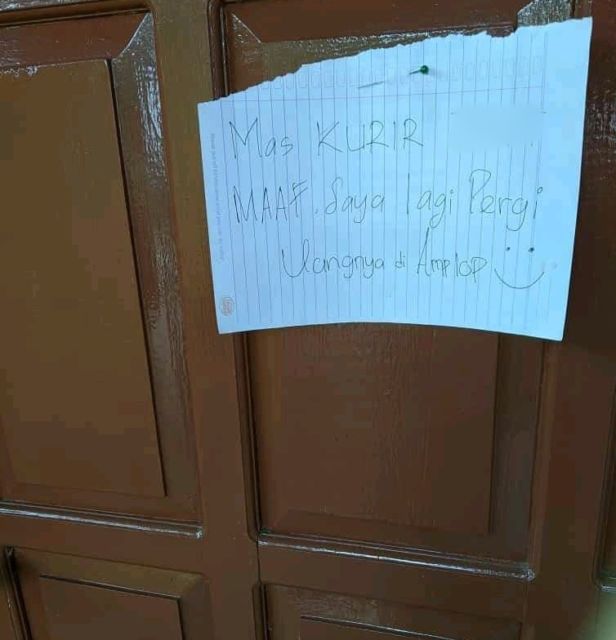 Mas KURIR
MAAF. Saya lagi Pergi
Uangnya di Amplop